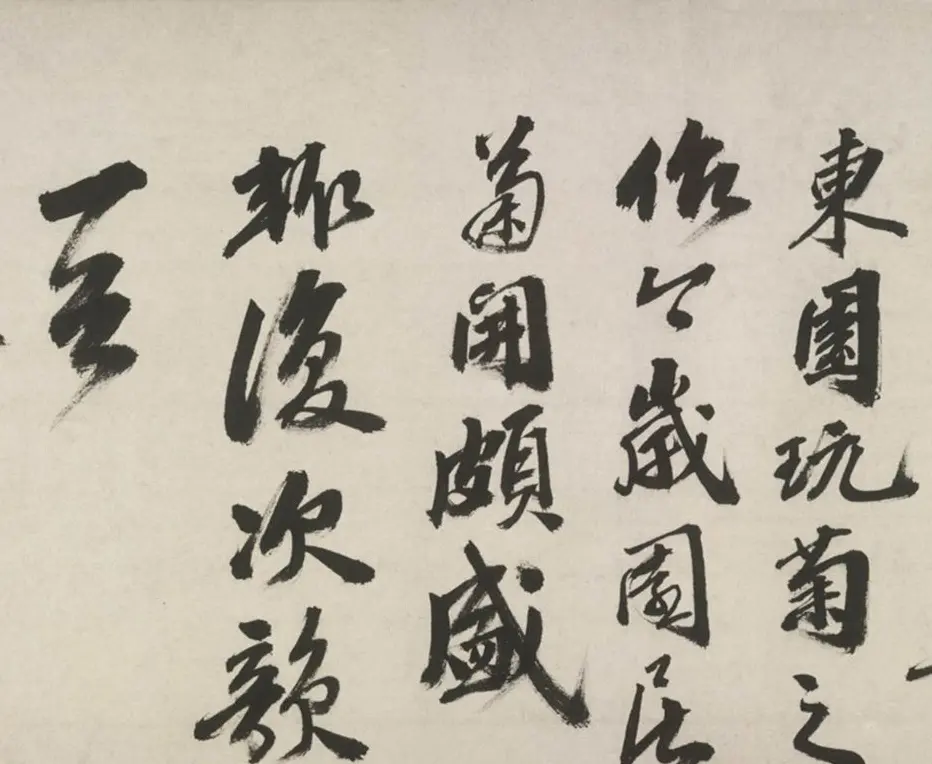 東園玩菊之
作今歲園居
菊開頗盛
輒復次韻
一首